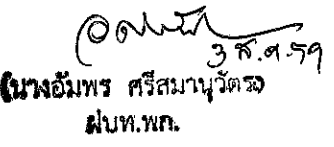 3 ส.ค.59
(นางอัมพร ศรีสมานุวัตร)
ฝบท.พก.